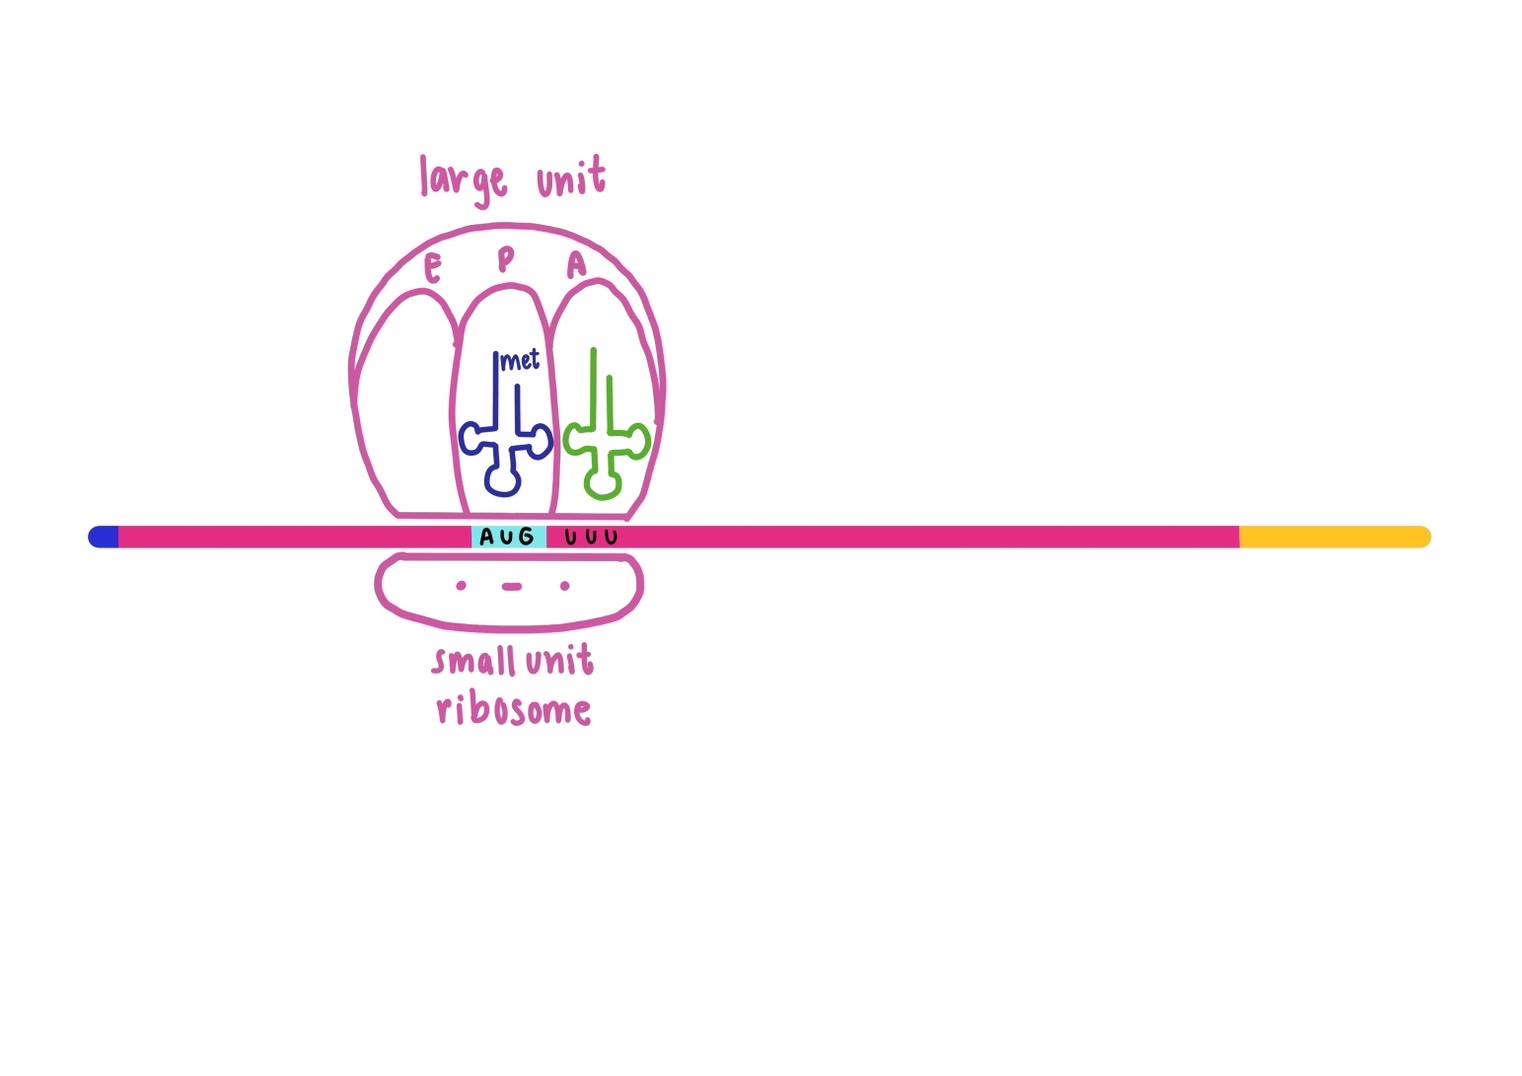 large unit
E P A
met
AUG UUU
small unit
ribosome